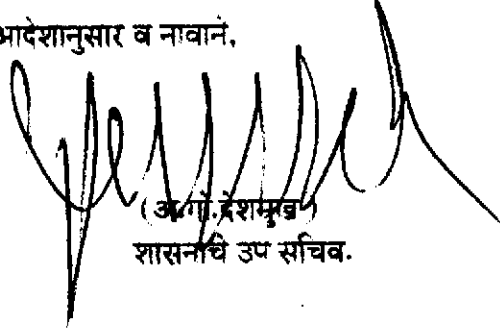 आदेशानुसार व नावाने,
(अ.गों.देशमुख)
शासनाचे उप सचिव.